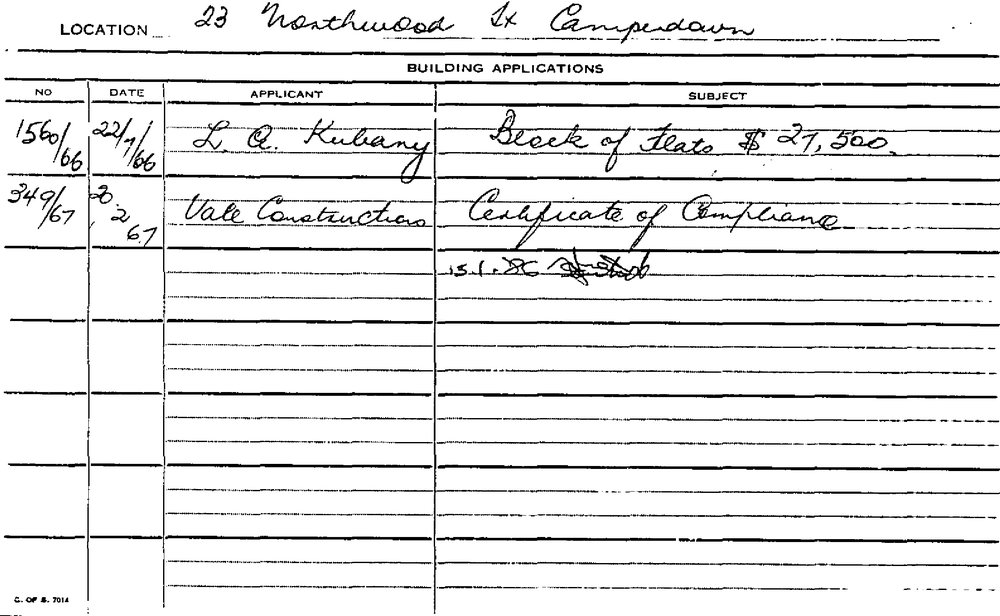 LOCATION 23 Northwood St Camperdown
BUILDING APPLICATIONS
NO DATE APPLICANT SUBJECT
1560/66 22/7/66 L. A. Kubany Block of Flats $ 27,500.
349/67 20.2.67 Vale Constructions Certificate of Compliance
15.1.86
C. OF S. 7014